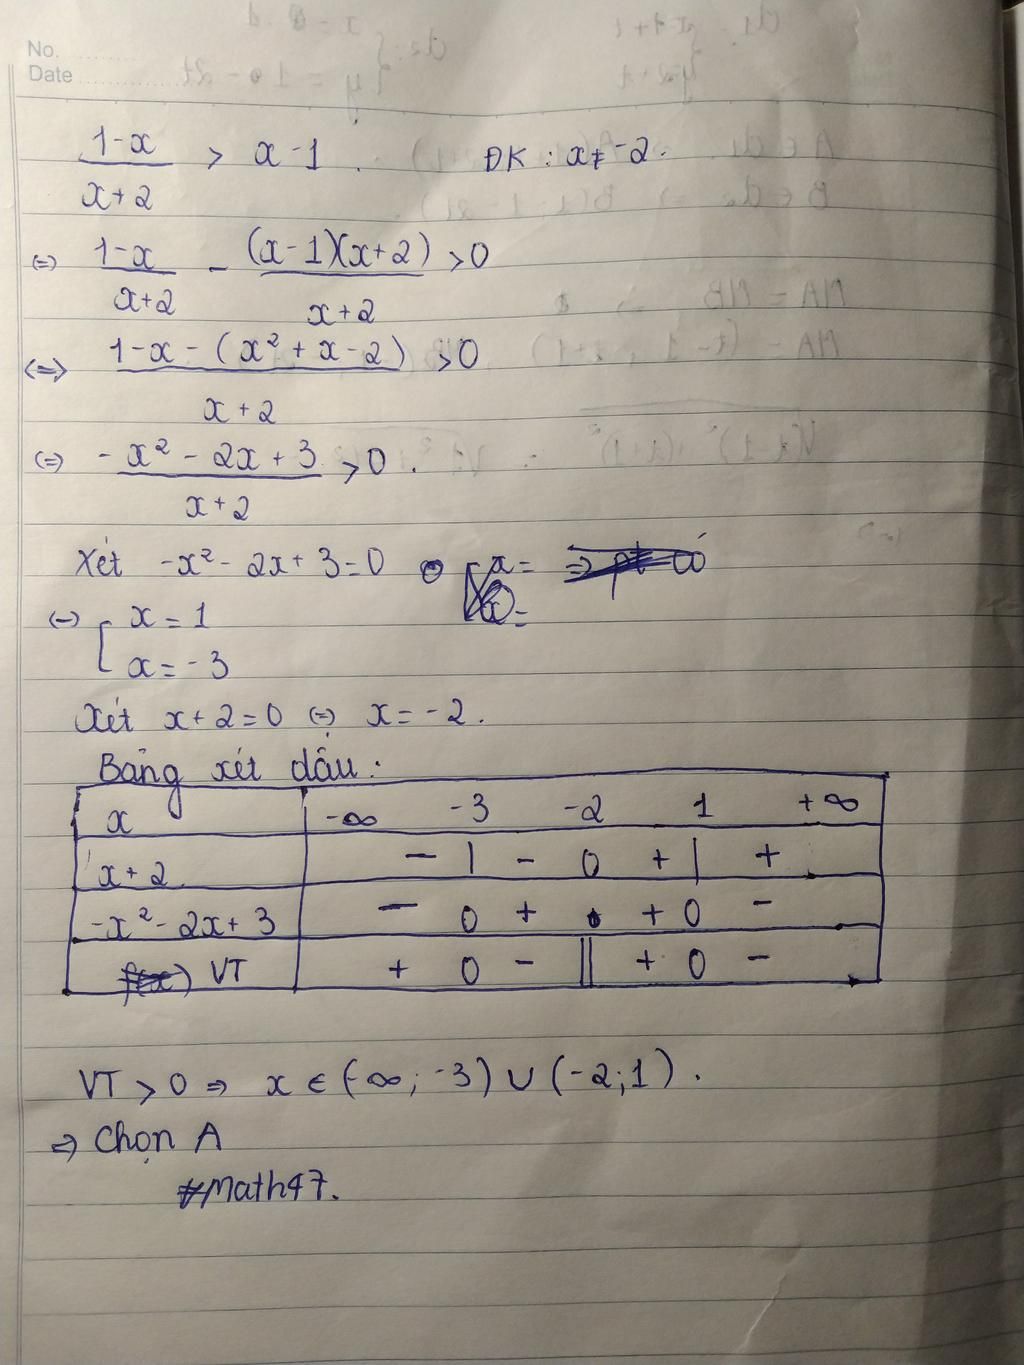 No.
Date
1-x / x+2 > x-1. ĐK: x ≠ -2.
(=) 1-x / x+2 - (x-1)(x+2) / x+2 > 0
(=) 1-x-(x² + x - 2) / x+2 > 0
(=) -x² - 2x + 3 / x+2 > 0.
Xét -x² - 2x + 3 = 0
(=) [ x = 1
x = -3
Xét x+2=0 (=) x = -2.
Bảng xét dấu:
x -∞ -3 -2 1 +∞
x+2 - | - 0 + | +
-x² - 2x + 3 - 0 + + 0 -
VT + 0 - || + 0 -
VT > 0 => x ∈ (-∞; -3) ∪ (-2; 1).
=> Chọn A
#Math47.